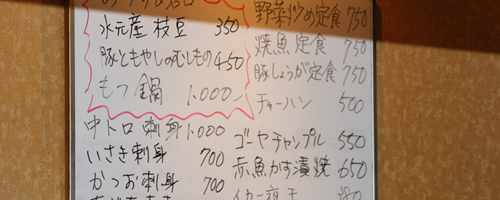 水元産 枝豆 350
豚ともやしのむしもの 450
もつ鍋 1.000-
中トロ 刺身 1.000
いさき刺身 700
かつお刺身 700
野菜炒め定食 750
焼魚定食 750
豚しょうが定食 750
チャーハン 500
ゴーヤチャンプル 550
赤魚かす漬焼 650
イカ一夜干